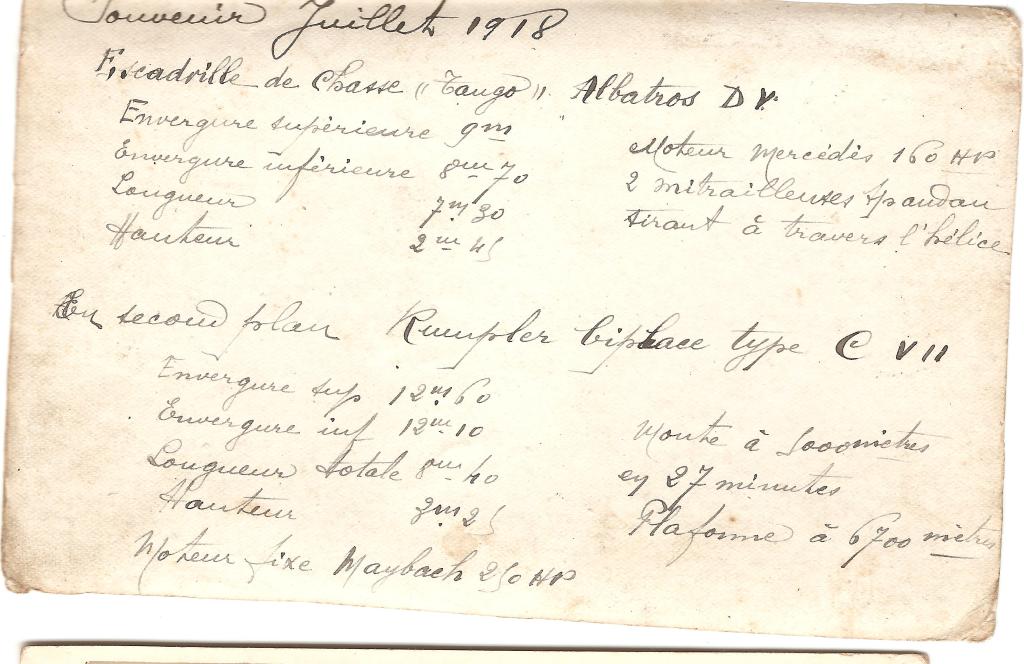 Souvenir Juillet 1918
Escadrille de Chasse "Tango" Albatros D V.
Envergure supérieure 9m
Envergure inférieure 8m 70
Longueur 7m 30
Hauteur 2m 45
Moteur Mercédès 160 HP
2 mitrailleuses Spandau
tirant à travers l'hélice
En second plan Rumpler biplace type C VII
Envergure sup 12m 60
Envergure inf 12m 10
Longueur totale 8m 40
Hauteur 3m 25
Moteur fixe Maybach 250 HP
Monte à 5000 mètres
en 27 minutes
Plafonne à 6700 mètres